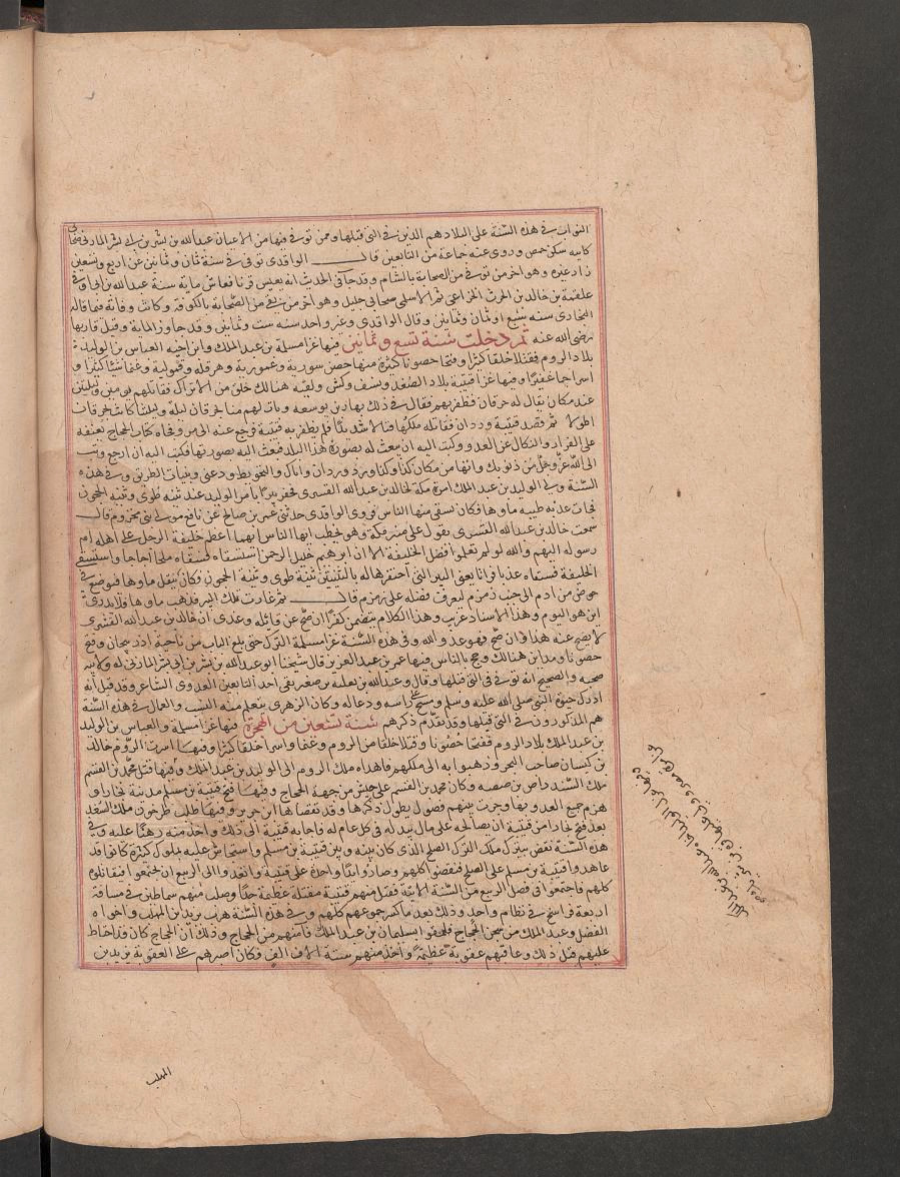 النواب في هذه السنة على البلاد هم الذين في التي قبلها وممن توفي فيها من الاعيان عبد الله بن بشر بن ابي بشر المازني صحابي
كابيه سكن حمص وروى عنه جماعة من التابعين قال الواقدي توفي في سنة ثمان وثمانين عن اربع وتسعين
زاد غيره وهو اخر من توفي من الصحابة بالشام وقد جا في الحديث انه يعيش قرنا فعاش ماية سنة عبد الله بن ابي اوفى
علقمة بن خالد بن الحرث الخزاعي ثم الاسلمي صحابي جليل وهو اخر من بقي من الصحابة بالكوفة وكانت وفاته فيما قاله
البخاري سنه سبع او ثمان وثمانين وقال الواقدي وغير واحد سنه ست وثمانين وقد جاوز الماية وقيل قاربها
رضي الله عنه ثم دخلت سنة تسع وثمانين فيها غزا مسلمة بن عبد الملك وابن اخيه العباس بن الوليد
بلاد الروم فقتلا خلقا كثيرا وفتحا حصونا كثيرة منها حصن سورية وعمورية وهرقلة وقمولية وغنما شيا كثيرا و
اسرا جما غفيرا وفيها غزا قتيبة بلاد الصغد ونسف وكش ولقيه هنالك خلق من الاتراك فقاتلهم يومين وليلتين
عند مكان يقال له خرقان فظفر بهم فقال في ذلك نهار بن توسعه وباتت لهم منا بخرقان ليلة وليلتنا كانت بخرقان
اطولا ثم قصد قتيبة وردان فقاتله ملكها قتالا شديدا فلم يظفر به قتيبة فرجع عنه الى مرو فجاه كتاب الحجاج يعنفه
على الفرار والنكال عن العدو وكتب اليه ان يبعث له بصورة هذا البلد فبعث اليه بصورتها فكتب اليه ان ارجع وتب
الى الله عز وجل من ذنوبك واتها من مكان كذا وكذا ورد وردان واياك والتحويط ودعني وبنيات الطريق وفي هذه
السنة ولي الوليد بن عبد الملك امرة مكة لخالد بن عبد الله القسري فحفر بيرا بامر الوليد عند ثنيه طوى وثنية الحجون
فجات عذبه طيبه ماوها فكان يستقي منها الناس فروى الواقدي حدثني عمر بن صالح عن نافع مولى بني مخزوم قال
سمعت خالد بن عبد الله القسري يقول على منبر مكة وهو يخطب ايها الناس ايهما اعظم خليفة الرجل على اهله ام
رسوله اليهم والله لو لم تعلموا فضل الخليفة الا ان ابرهيم خليل الرحمن استسقاه فسقاه ملحا اجاجا واستسقى
الخليفة فسقاه عذبا فراتا يعني البير التي احتفرها له بالثنيتين ثنية طوى وثنية الحجون فكان ينقل ماوها فيوضع في
حوض من ادم الى جنب زمزم ليعرف فضله على زمزم قال ثم غارت تلك البير فذهب ماوها فلا يدرى
اين هو اليوم وهذا الاسناد غريب وهذا الكلام يتضمن كفرا ان صح عن قايله وعندي ان خالد بن عبد الله القسري
لا يصح عنه هذا فان صح فهو عدو الله وفي هذه السنة غزا مسلمة الترك حتى بلغ الباب من ناحية اذربيجان وفتح
حصونا ومداين هنالك وحج بالناس فيها عمر بن عبد العزيز قال شيخنا ابو عبد الله بن بشر بن ابي بشر المازني له ولابيه
صحبه والصحيح انه توفي في التي قبلها وقال وعبد الله بن ثعلبة بن صغير بقي احد التابعين العدوى الشاعر وقد قيل انه
ادرك حيوة النبي صلى الله عليه وسلم ومسح على راسه ودعا له وكان الزهري يتعلم منه النسب والعمال في هذه السنة
هم المذكورون في التي قبلها وقد تقدم ذكرهم سنة تسعين من الهجرة فيها غزا مسلمة والعباس بن الوليد
بن عبد الملك بلاد الروم ففتحا حصونا وقتلا خلقا من الروم وغنما واسرا خلقا كثيرا وفيها اسرت الروم خالد
بن كيسان صاحب البحر وذهبوا به الى ملكهم فاهداه ملك الروم الى الوليد بن عبد الملك وفيها قتل محمد بن القسم
ملك السند داهر بن صصه وكان محمد بن القسم على جيش من جهة الحجاج وفيها فتح قتيبة بن مسلم مدينة بخارا و
هزم جميع العدو بها وجرت بينهم فصول يطول ذكرها وقد تقصاها ابن جرير وفيها طلب طرخون ملك السغد
بعد فتح بخارا من قتيبة ان يصالحه على مال يبذله في كل عام له فاجابه قتيبة الى ذلك واخذ منه رهنا عليه وفي
هذه السنة نقض نيزك ملك الترك الصلح الذي كان بينه وبين قتيبة بن مسلم واستجاش عليه بملوك كثيرة كانوا قد
عاهدوا قتيبة بن مسلم على الصلح فنقضوا كلهم وصاروا يدا واحدة على قتيبة واتعدوا الى الربيع ان يجتمعوا فيقاتلوه
كلهم فاجتمعوا في فصل الربيع من السنة الاتية فقتل منهم قتيبة مقتلة عظيمة جدا وصلب منهم سماطين في مسافة
اربعة فراسخ في نظام واحد وذلك بعد ما كسر جموعهم كلهم وفي هذه السنة هرب يزيد بن المهلب واخواه
الفضل وعبد الملك من سجن الحجاج فلحقوا بسلمان بن عبد الملك فامنهم من الحجاج وذلك ان الحجاج كان قد احتاط
عليهم قبل ذلك وعاقبهم عقوبة عظيمة واخذ منهم ستة الاف الف فكان اصبرهم على العقوبة يزيد بن
المهلب